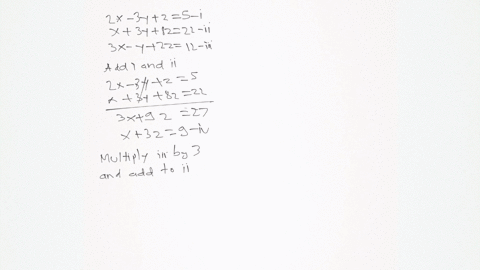 2x-3y+z=5-i
x+3y+8z=22-ii
3x-y+2z=12-iii
Add i and ii
2x-3y+z=5
x+3y+8z=22
3x+9z=27
x+3z=9-iv
Multiply iii by 3
and add to ii